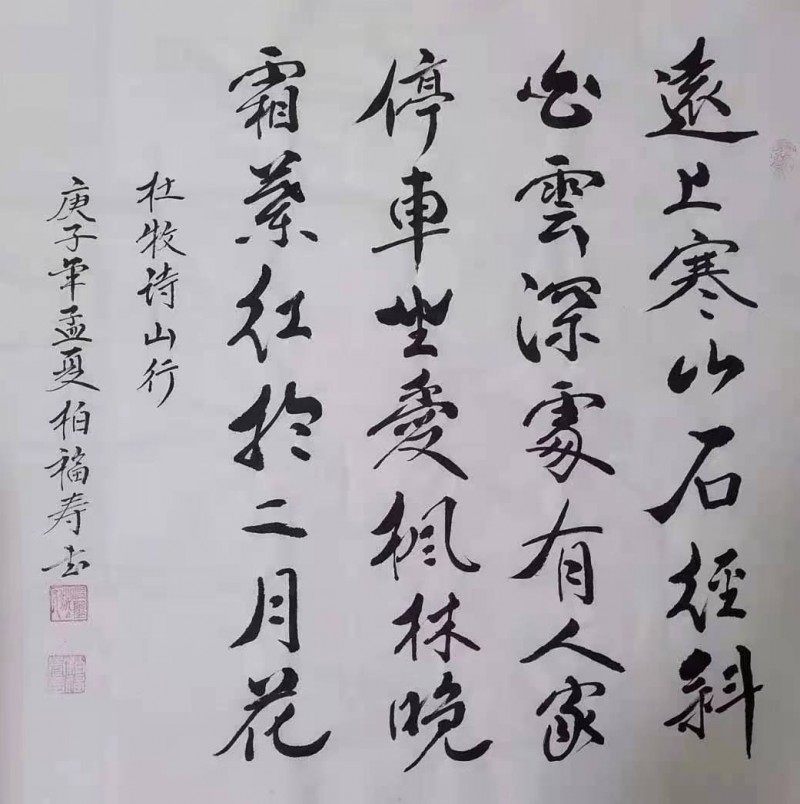 遠上寒山石徑斜
白雲深處有人家
停車坐愛楓林晚
霜葉紅於二月花
杜牧诗山行
庚子年孟夏柏福寿书